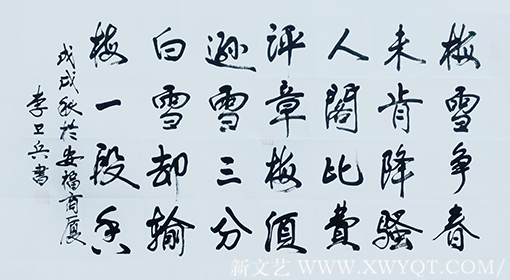 梅雪争春
未肯降騷
人閣比費
評章梅須
遜雪三分
白雪却輸
梅一段香
戊戌秋於安福商厦
李卫兵書
新文艺 WWW.XWYQT.COM/